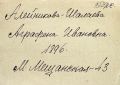 Алейникова-Шалаева
Аграфена Ивановна.
1896.
М. Мещанская-43